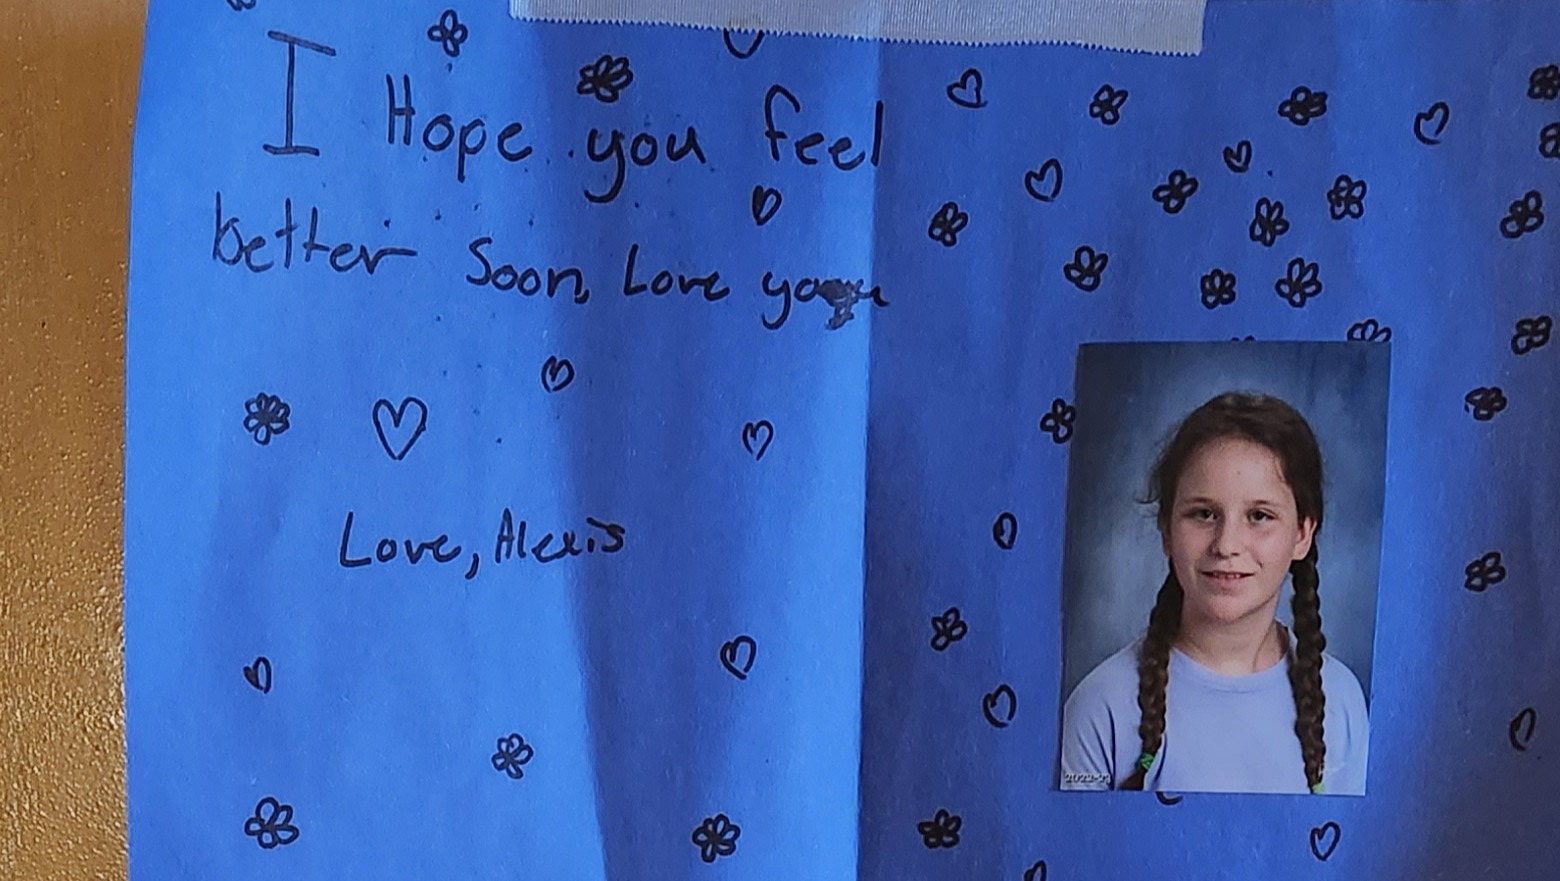 I Hope you feel
better Soon, Love you
Love, Alexis
2022-23